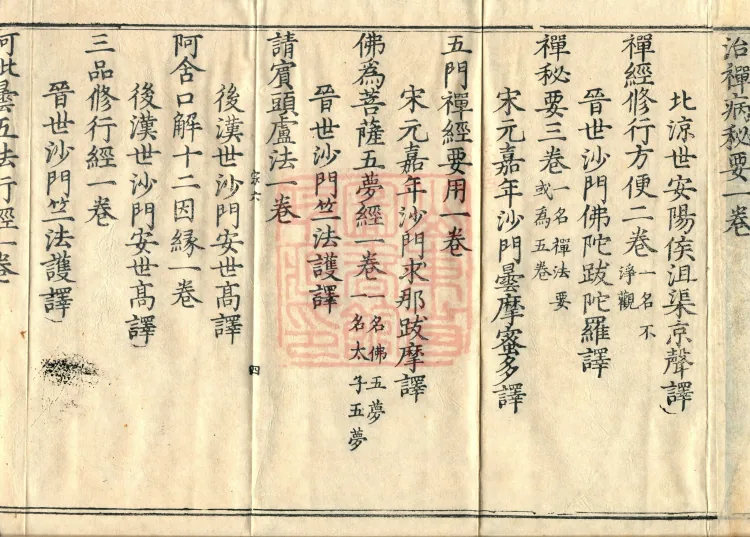 治禪病秘要一卷
北涼世安陽侯沮渠京聲譯
禪經修行方便二卷一名不淨觀
晉世沙門佛陀跋陀羅譯
禪秘要三卷一名禪法要或為五卷
宋元嘉年沙門曇摩蜜多譯
五門禪經要用一卷
宋元嘉年沙門求那跋摩譯
佛為菩薩五夢經一卷一名佛五夢一名太子五夢
晉世沙門竺法護譯
請賓頭盧法一卷
宗六 四
後漢世沙門安世髙譯
阿含口解十二因緣一卷
後漢世沙門安世髙譯
三品修行經一卷
晉世沙門竺法護譯
阿毗曇五法行經一卷